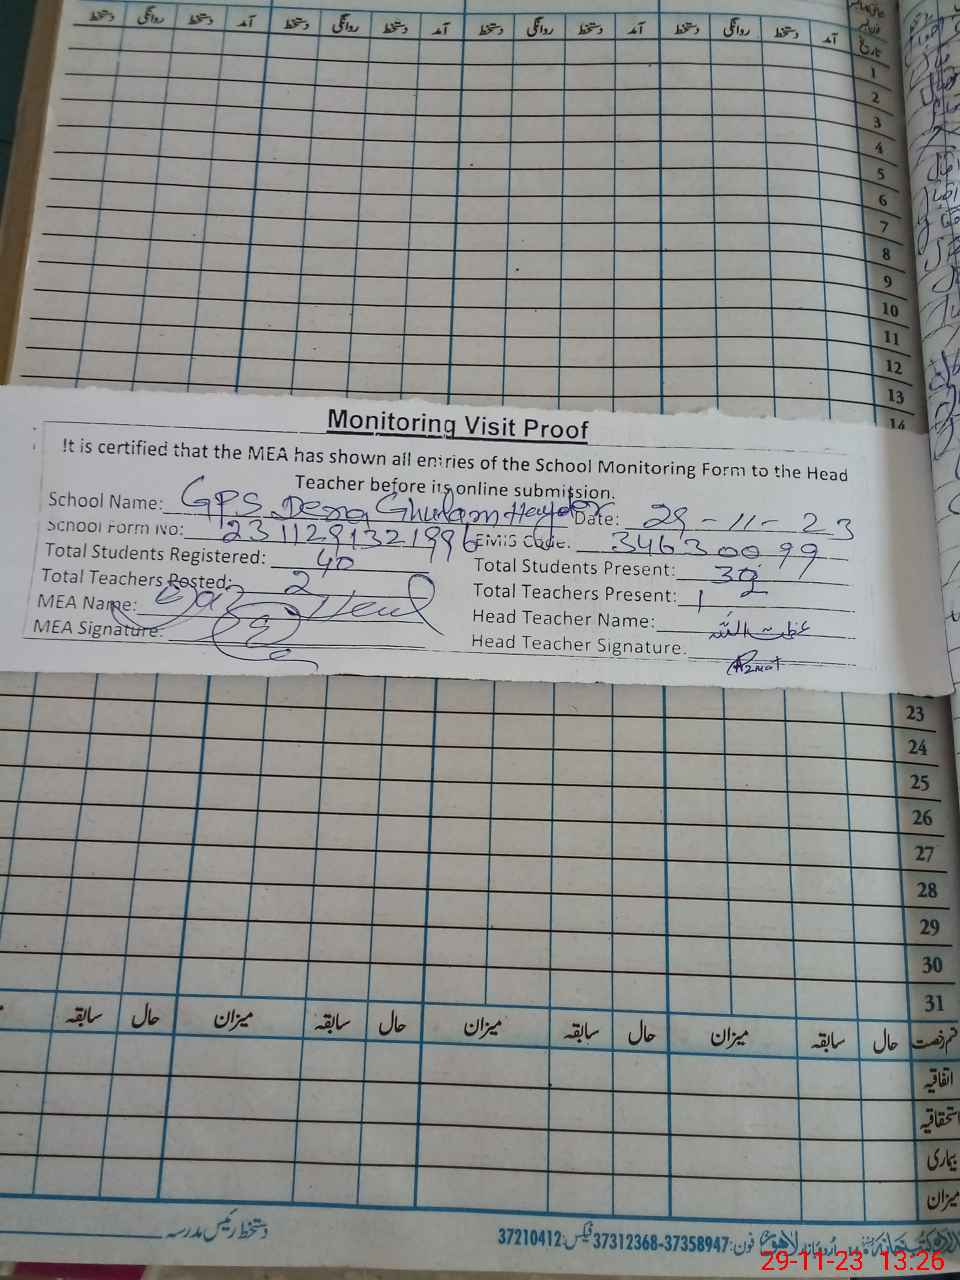 دستخط روانگی دستخط آمد دستخط روانگی دستخط آمد دستخط روانگی دستخط آمد دستخط روانگی دستخط آمد تاریخ
1
2
3
4
5
6
7
8
9
10
11
12
13
14
Monitoring Visit Proof
It is certified that the MEA has shown all entries of the School Monitoring Form to the Head
Teacher before its online submission.
School Name: GPS Dera Ghulam Hayder Date: 29-11-23
School Form No: 2311291321996 EMIS Code: 34630099
Total Students Registered: 40 Total Students Present:
Total Teachers Posted: 2 Total Teachers Present: 1
MEA Name: Head Teacher Name: عظمت اللہ
MEA Signature: Head Teacher Signature. Azmat
23
24
25
26
27
28
29
30
31
سابقہ حال میزان سابقہ حال میزان سابقہ حال میزان سابقہ حال قسم رخصت
اتفاقیہ
استحقاقیہ
بیماری
میزان
دستخط رئیس مدرسہ
اُردو بازار لاہور فون: 37358947-37312368 فیکس: 37210412
29-11-23 13.26